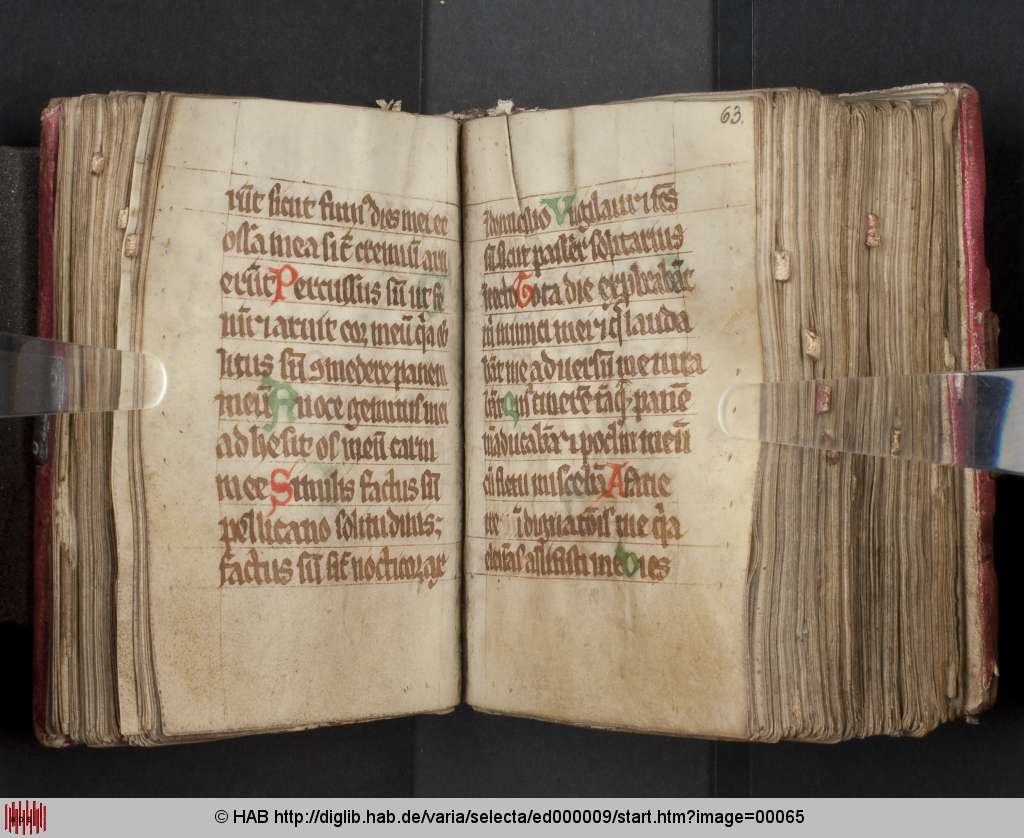 rūt sicut fum⁹ dies mei et
ossa mea sic̄ cremiū aru
erūt Percussus sū ut fe
nū ⁊ aruit cor meū q̄a ob
litus sū ꝯmedere panem
meū A uoce gemitus mei
adhesit os meū carni
mee Similis factus sū
pellicano solitudinis;
factus sū sic̄ nocticorax
in domicilio Vigilaui ⁊ fc̄s
sū sicut passer solitarius
in tecto Tota die exprobabāt
m̄ inimici mei ⁊ q̄ lauda
bāt me aduersū me iura
bāt Quia cinerē tāq̄ panē
māducabā ⁊ poclm̄ meū
cū fletu miscebā A facie
ire īdignatōis tue q̄a
eleuās allisisti me Dies
63.
© HAB http://diglib.hab.de/varia/selecta/ed000009/start.htm?image=00065